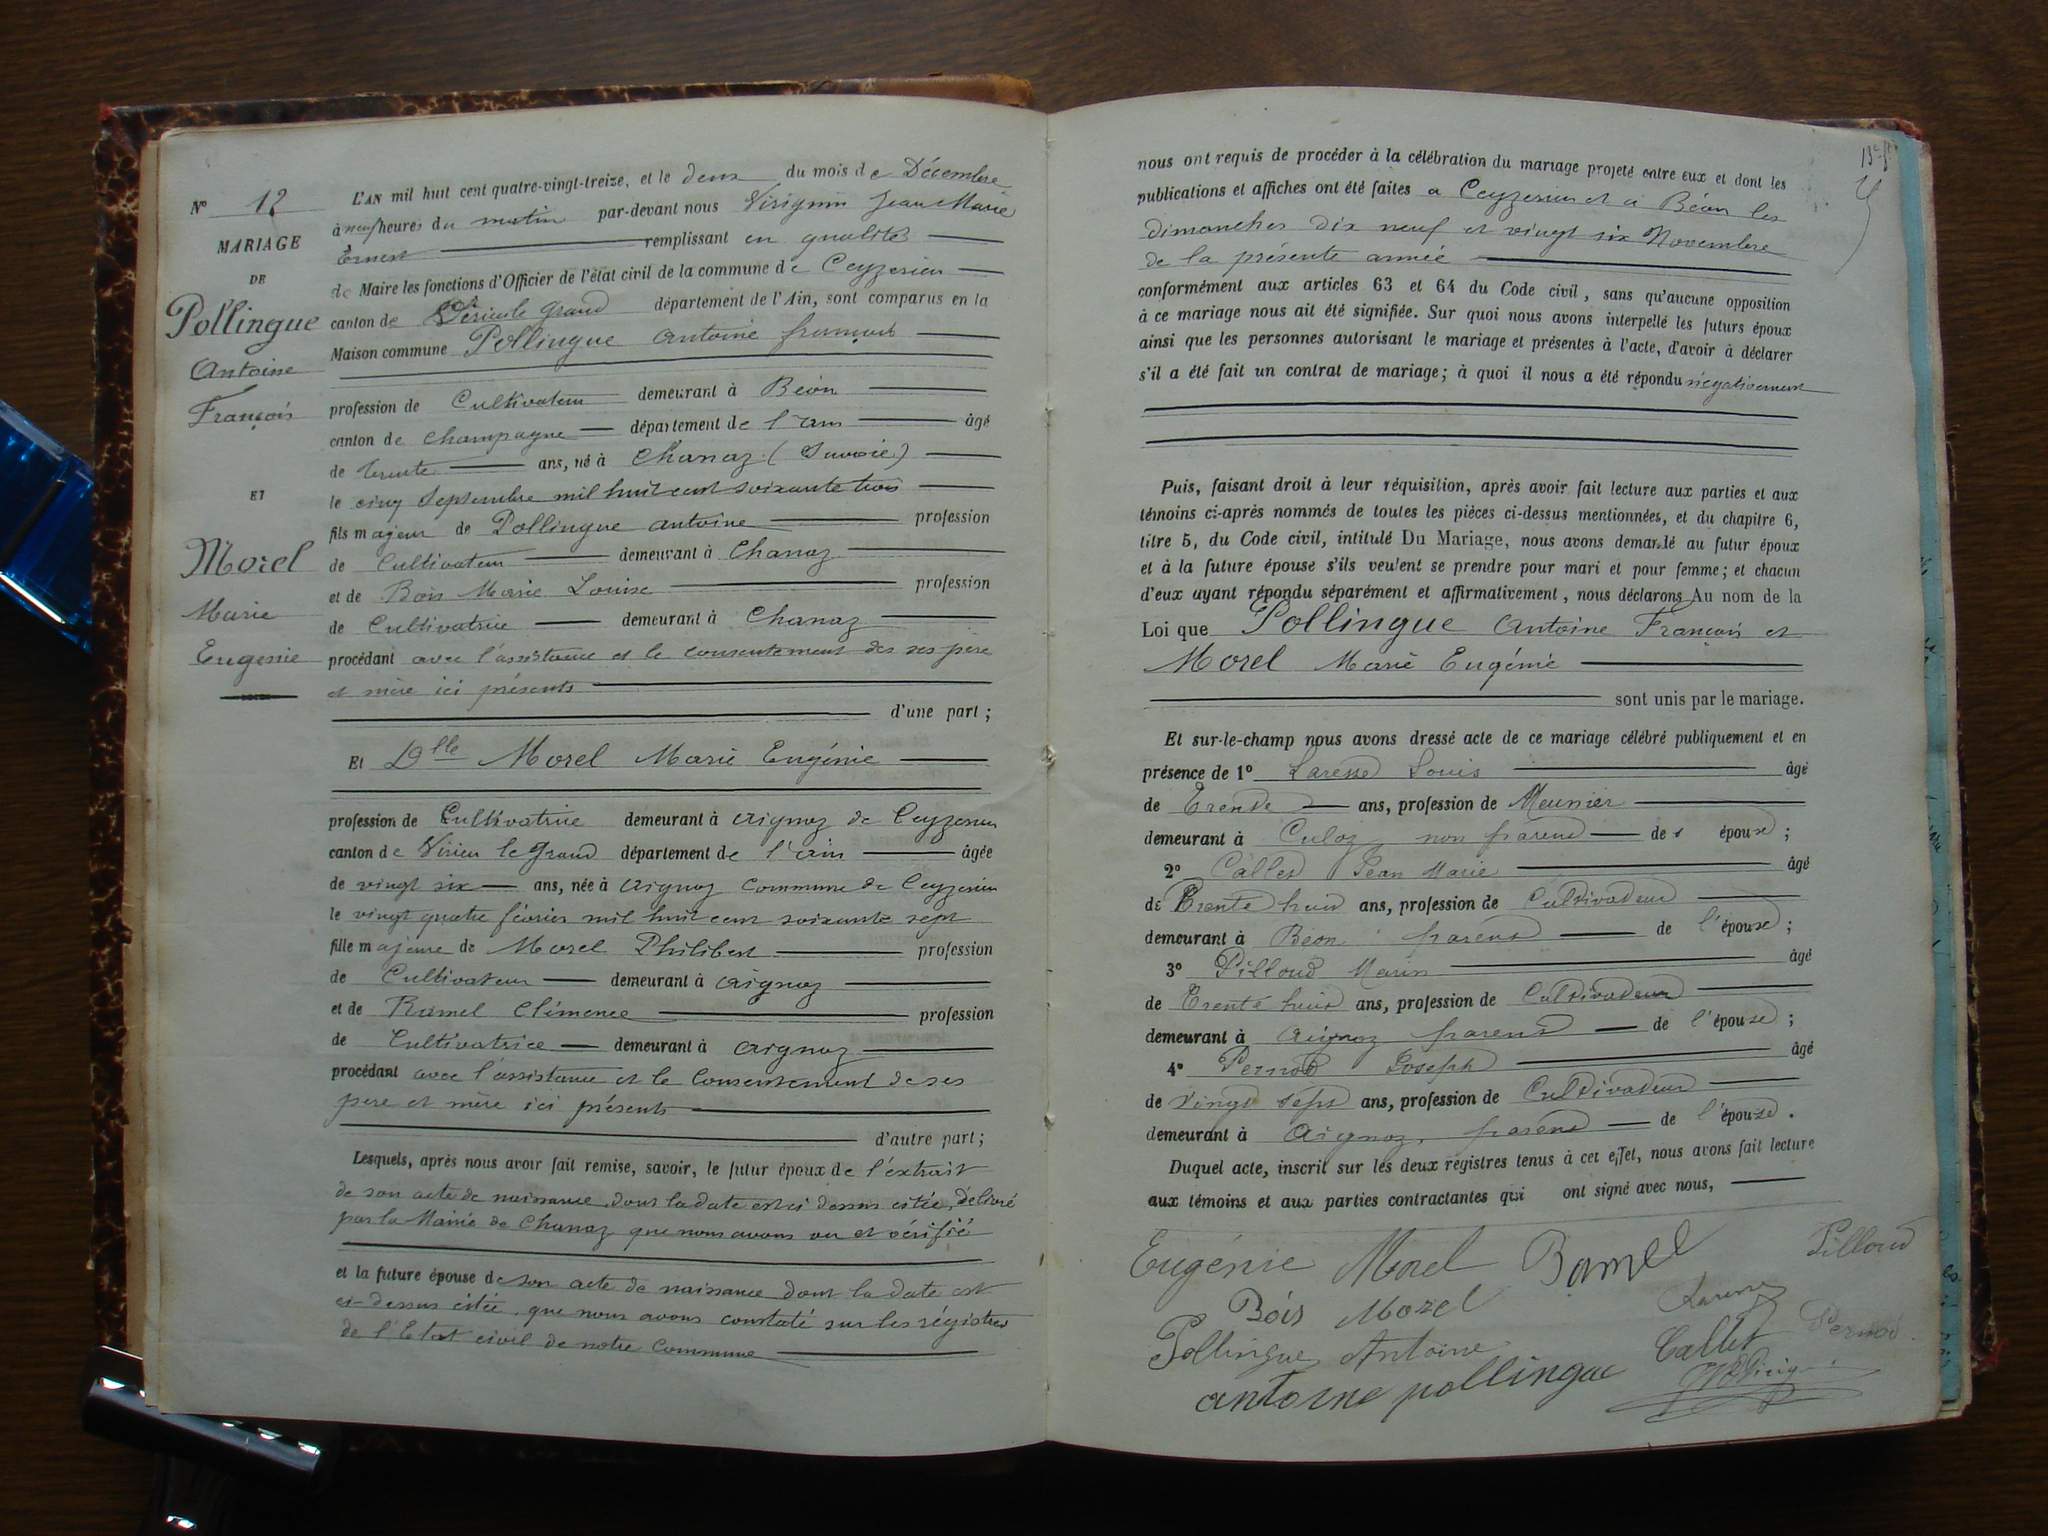 N° 12
MARIAGE
DE
Pollingue
Antoine
François
ET
Morel
Marie
Eugénie
L'AN mil huit cent quatre-vingt-treize, et le deux du mois de Décembre
à neuf heures du matin par-devant nous Virignin Jean Marie
Ernest remplissant en qualité
de Maire les fonctions d'Officier de l'état civil de la commune de Ceyzerieu
canton de Virieu le grand département de l'Ain, sont comparus en la
Maison commune Pollingue Antoine françois
profession de Cultivateur demeurant à Béon
canton de Champagne département de l'ain âgé
de trente ans, né à Chanaz (Savoie)
le cinq Septembre mil huit cent soixante trois
fils majeur de Pollingue Antoine profession
de Cultivateur demeurant à Chanaz
et de Bois Marie Louise profession
de Cultivatrice demeurant à Chanaz
procédant avec l'assistance et le consentement des ses père
et mère ici présents
d'une part;
Et Dlle Morel Marie Eugénie
profession de Cultivatrice demeurant à Aignoz de Ceyzerieu
canton de Virieu le Grand département de l'ain âgée
de vingt six ans, née à Aignoz Commune de Ceyzerieu
le vingt quatre février mil huit cent soixante sept
fille majeure de Morel Philibert profession
de Cultivateur demeurant à Aignoz
et de Ramel Clémence profession
de Cultivatrice demeurant à Aignoz
procédant avec l'assistance et le Consentement de ses
père et mère ici présents
d'autre part;
Lesquels, après nous avoir fait remise, savoir, le futur époux de l'extrait
de son acte de naissance dont la date est ci dessus citée, délivré
par la Mairie de Chanaz que nous avons vu et vérifié
et la future épouse de son acte de naissance dont la date est
ci-dessus citée, que nous avons constaté sur les régistres
de l'Etat civil de notre Commune
nous ont requis de procéder à la célébration du mariage projeté entre eux et dont les
publications et affiches ont été faites a Ceyzerieu et a Béon les
dimanches dix neuf et vingt six Novembre
de la présente année
conformément aux articles 63 et 64 du Code civil, sans qu'aucune opposition
à ce mariage nous ait été signifiée. Sur quoi nous avons interpellé les futurs époux
ainsi que les personnes autorisant le mariage et présentes à l'acte, d'avoir à déclarer
s'il a été fait un contrat de mariage; à quoi il nous a été répondu négativement
Puis, faisant droit à leur réquisition, après avoir fait lecture aux parties et aux
témoins ci-après nommés de toutes les pièces ci-dessus mentionnées, et du chapitre 6,
titre 5, du Code civil, intitulé Du Mariage, nous avons demandé au futur époux
et à la future épouse s'ils veulent se prendre pour mari et pour femme; et chacun
d'eux ayant répondu séparément et affirmativement, nous déclarons Au nom de la
Loi que Pollingue Antoine François et
Morel Marie Eugénie
sont unis par le mariage.
Et sur-le-champ nous avons dressé acte de ce mariage célébré publiquement et en
présence de 1° Louis âgé
de Trente ans, profession de Meunier
demeurant à Culoz non parent de s épouse;
2° Callet Jean Marie âgé
de Trente huit ans, profession de Cultivateur
demeurant à Béon parent de l'épouse;
3° Pilloud Marin âgé
de Trente huit ans, profession de Cultivateur
demeurant à Aignoz parent de l'épouse;
4° Pernod Joseph âgé
de Vingt sept ans, profession de Cultivateur
demeurant à Aignoz, parent de l'épouse.
Duquel acte, inscrit sur les deux registres tenus à cet effet, nous avons fait lecture
aux témoins et aux parties contractantes qui ont signé avec nous,
Eugénie Morel Ramel Pilloud
Bois Morel
Pollingue Antoine Callet Pernod
antoine pollingue